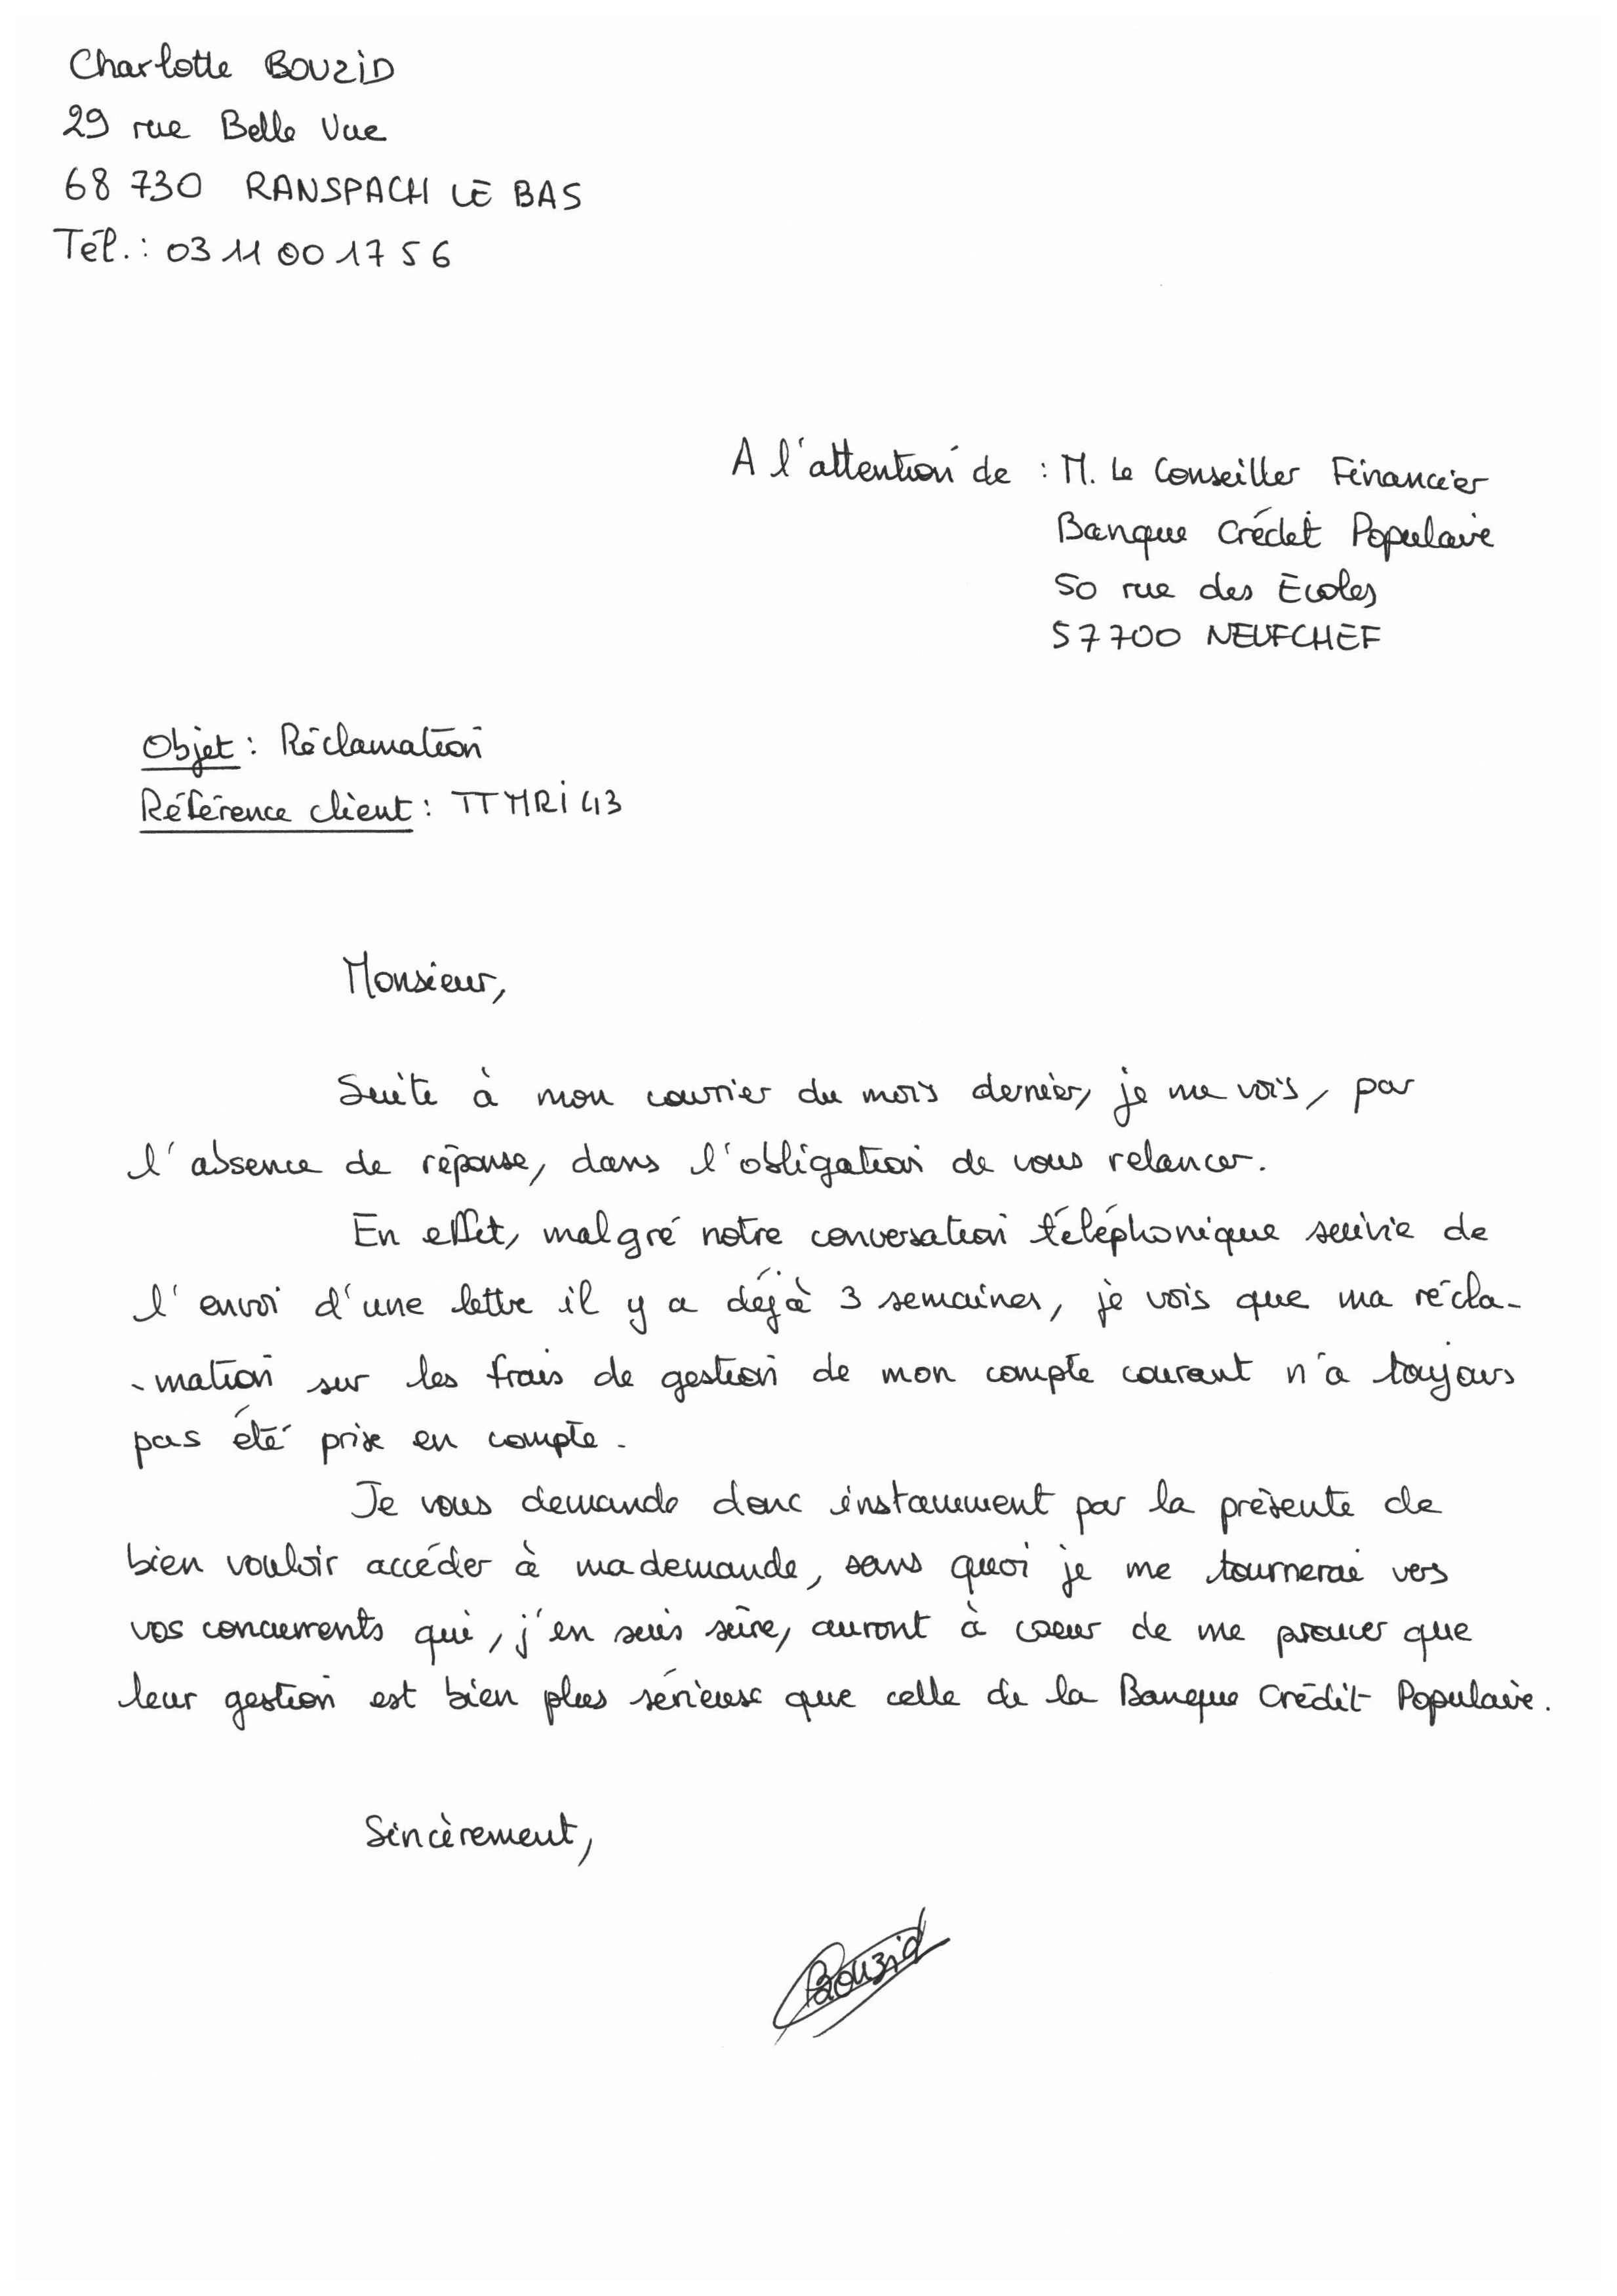 Charlotte BOUZID
29 rue Belle Vue
68 730 RANSPACH LE BAS
Tél. : 03 11 00 17 56
A l'attention de : M. Le Conseiller Financier
Banque Crédit Populaire
50 rue des Ecoles
57700 NEUFCHEF
Objet : Réclamation
Référence client : TTMRI43
Monsieur,
Suite à mon courrier du mois dernier, je me vois, par
l'absence de réponse, dans l'obligation de vous relancer.
En effet, malgré notre conversation téléphonique suivie de
l'envoi d'une lettre il y a déjà 3 semaines, je vois que ma récla-
-mation sur les frais de gestion de mon compte courant n'a toujours
pas été prise en compte.
Je vous demande donc instamment par la présente de
bien vouloir accéder à ma demande, sans quoi je me tournerai vers
vos concurrents qui, j'en suis sûre, auront à coeur de me prouver que
leur gestion est bien plus sérieuse que celle de la Banque Crédit Populaire.
Sincèrement,
Bouzid